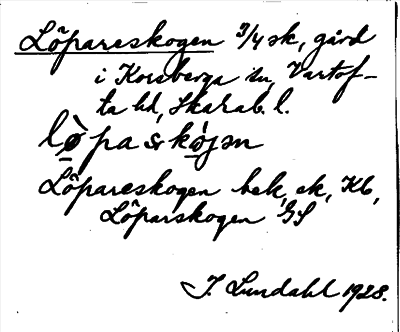 Löpareskogen 3/4 sk, gård
i Korsberga sn, Vartof-
ta hd, Skarab. l.
lø̀paskójən
Löpareskogen bek, ek, Kb,
Löparskogen GS
J. Lundahl 1928.